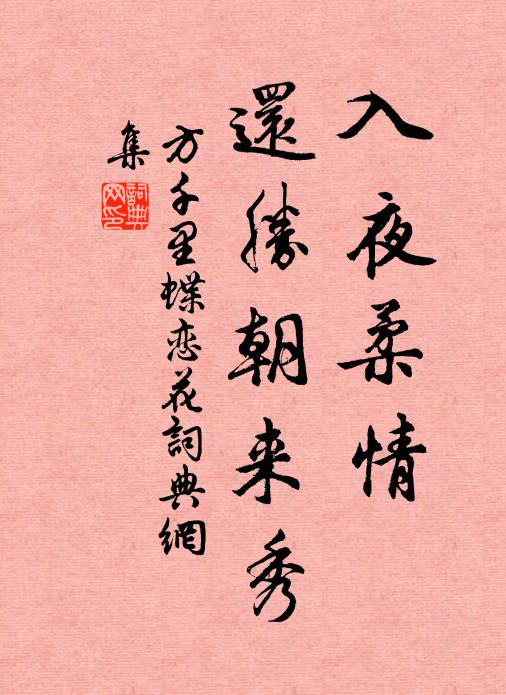 入夜柔情
還勝朝来秀
方千里蝶恋花詞典網
集
詞典網印